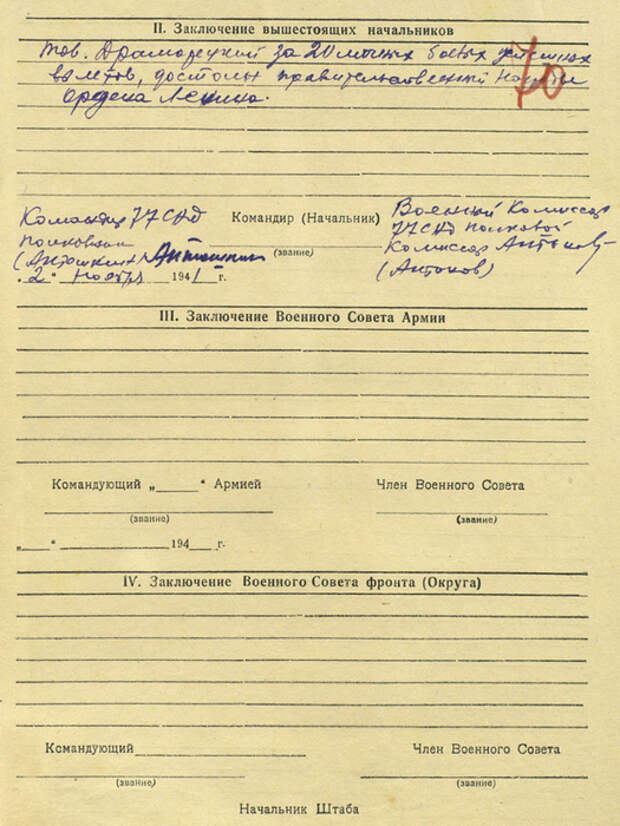 II. Заключение вышестоящих начальников
тов. Драморецкий за 20 ночных боевых успешных
вылетов, достоин правительственной награды
Ордена Ленина.
70
Командир 77 САД
полковник
(Антошкин) Антошкин
Командир (Начальник)
(звание)
Военный Комиссар
77 САД полковой
комиссар Антонов
(Антонов)
„2“ Ноября 1941 г.
III. Заключение Военного Совета Армии
Командующий „ “ Армией
Член Военного Совета
(звание)
(звание)
„ “ 194 г.
IV. Заключение Военного Совета фронта (Округа)
Командующий
Член Военного Совета
(звание)
(звание)
Начальник Штаба